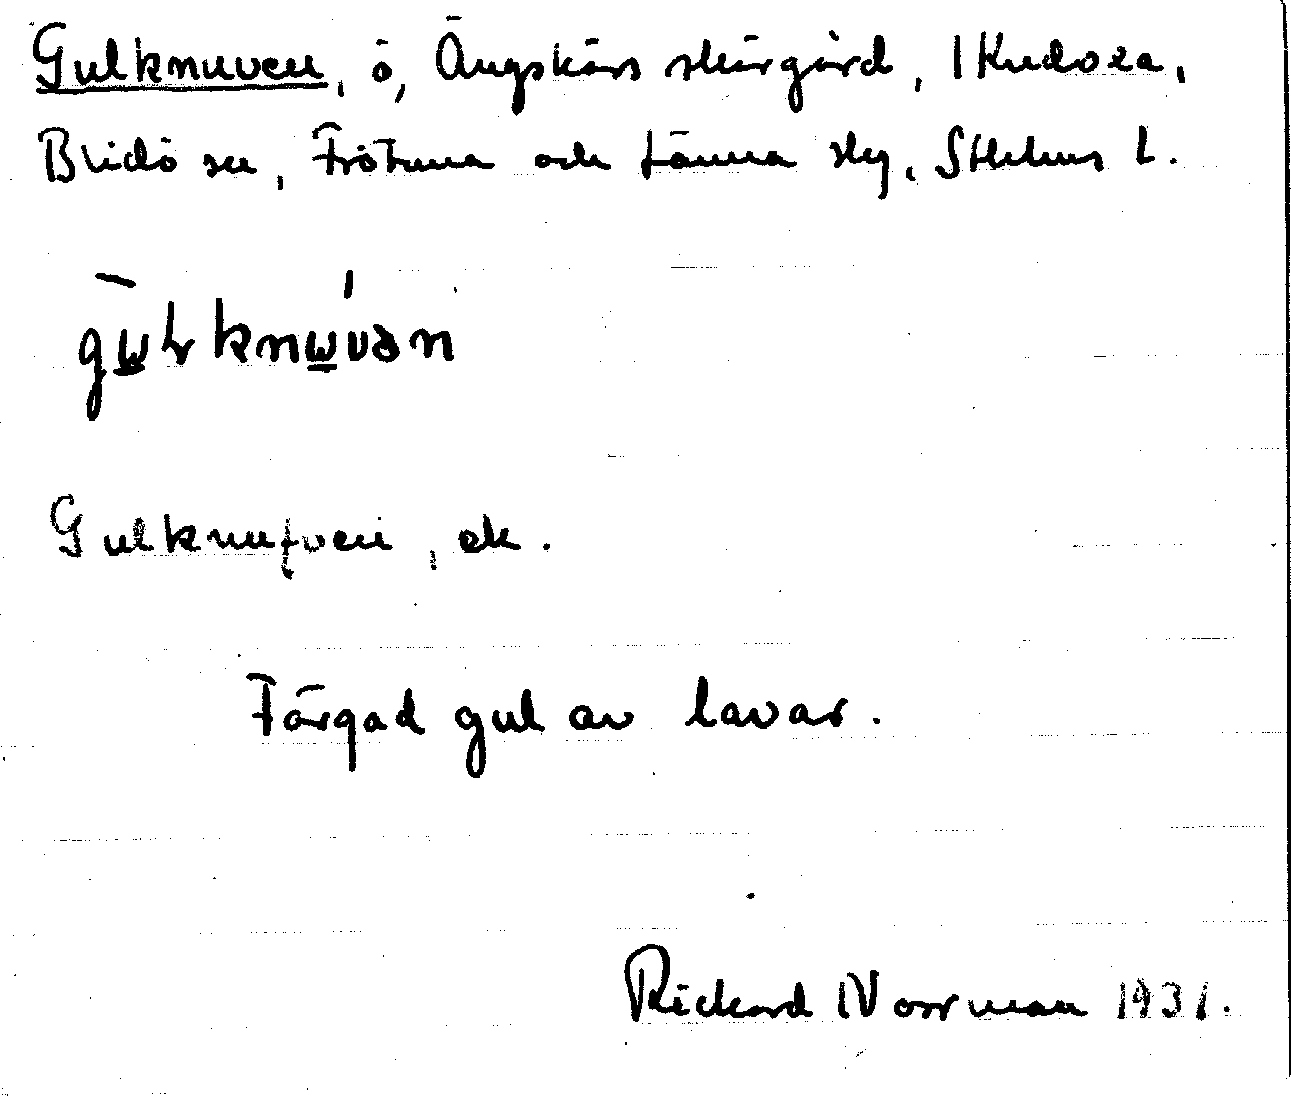 Gulknuven, ö, Ängskärs skärgård, 1 Kudoxa,
Blidö sn, Frötuna och Länna skg, Sthlms L.
gu̲lknu̲vən
Gulknufven, ek.
Färgad gul av lavar.
Rickard Norrman 1931.